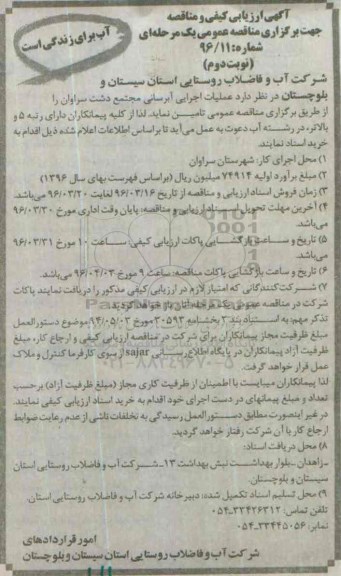 آگهی ارزیابی کیفی و مناقصه
جهت برگزاری مناقصه عمومی یک مرحله‌ای
شماره: ۹۶/۱۱
(نوبت دوم)
آب برای زندگی است
شرکت آب و فاضلاب روستایی استان سیستان و
بلوچستان در نظر دارد عملیات اجرایی آبرسانی مجتمع دشت سراوان را
از طریق برگزاری مناقصه عمومی تامین نماید، لذا از کلیه پیمانکاران دارای رتبه ۵ و
بالاتر، در رشته آب دعوت به عمل می آید تا براساس اطلاعات اعلام شده ذیل اقدام به
خرید اسناد نمایند.
۱) محل اجرای کار: شهرستان سراوان
۲) مبلغ برآورد اولیه ۷۴۹۱۴ میلیون ریال (براساس فهرست بهای سال ۱۳۹۶)
۳) زمان فروش اسناد ارزیابی و مناقصه از تاریخ ۹۶/۰۳/۱۶ لغایت ۹۶/۰۳/۲۰ می‌باشد.
۴) آخرین مهلت تحویل اسناد ارزیابی و مناقصه: پایان وقت اداری مورخ ۹۶/۰۳/۳۰
می‌باشد.
۵) تاریخ و ساعت بازگشایی پاکات ارزیابی کیفی: ساعت ۱۰ مورخ ۹۶/۰۳/۳۱
می‌باشد.
۶) تاریخ و ساعت بازگشایی پاکات مناقصه: ساعت ۹ مورخ ۹۶/۰۴/۰۳ می‌باشد.
۷) شرکت‌کنندگانی که امتیاز لازم در ارزیابی کیفی مذکور را دریافت نمایند پاکات
شرکت در مناقصه عمومی یک مرحله‌ای آنان باز خواهد گردید.
تذکر مهم: به استناد بند ۲ بخشنامه ۳۰۵۹۳ مورخ ۹۴/۰۵/۰۳ موضوع دستورالعمل
مبلغ ظرفیت مجاز پیمانکاران برای شرکت در مناقصه ارزیابی کیفی و ارجاع کار، مبلغ
ظرفیت آزاد پیمانکاران در پایگاه اطلاع رسانی sajar از سوی کارفرما کنترل و ملاک
عمل قرار خواهد گرفت.
لذا پیمانکاران میبایست با اطمینان از ظرفیت کاری مجاز (مبلغ ظرفیت آزاد) برحسب
تعداد و مبلغ پیمانهای در دست اجرای خود اقدام به خرید اسناد ارزیابی کیفی نمایند.
در غیر اینصورت مطابق دستورالعمل رسیدگی به تخلفات ناشی از عدم رعایت ضوابط
ارجاع کار با آن شرکت رفتار خواهد گردید.
۸) محل دریافت اسناد:
-زاهدان-بلوار بهداشت نبش بهداشت ۱۳-شرکت آب و فاضلاب روستایی استان
سیستان و بلوچستان.
۹) محل تسلیم اسناد تکمیل شده: دبیرخانه شرکت آب و فاضلاب روستایی استان.
تلفن تماس: ۳۳۴۲۶۳۱۲-۰۵۴
نمابر: ۳۳۴۴۵۰۵۶-۰۵۴
امور قراردادهای
شرکت آب و فاضلاب روستایی استان سیستان و بلوچستان